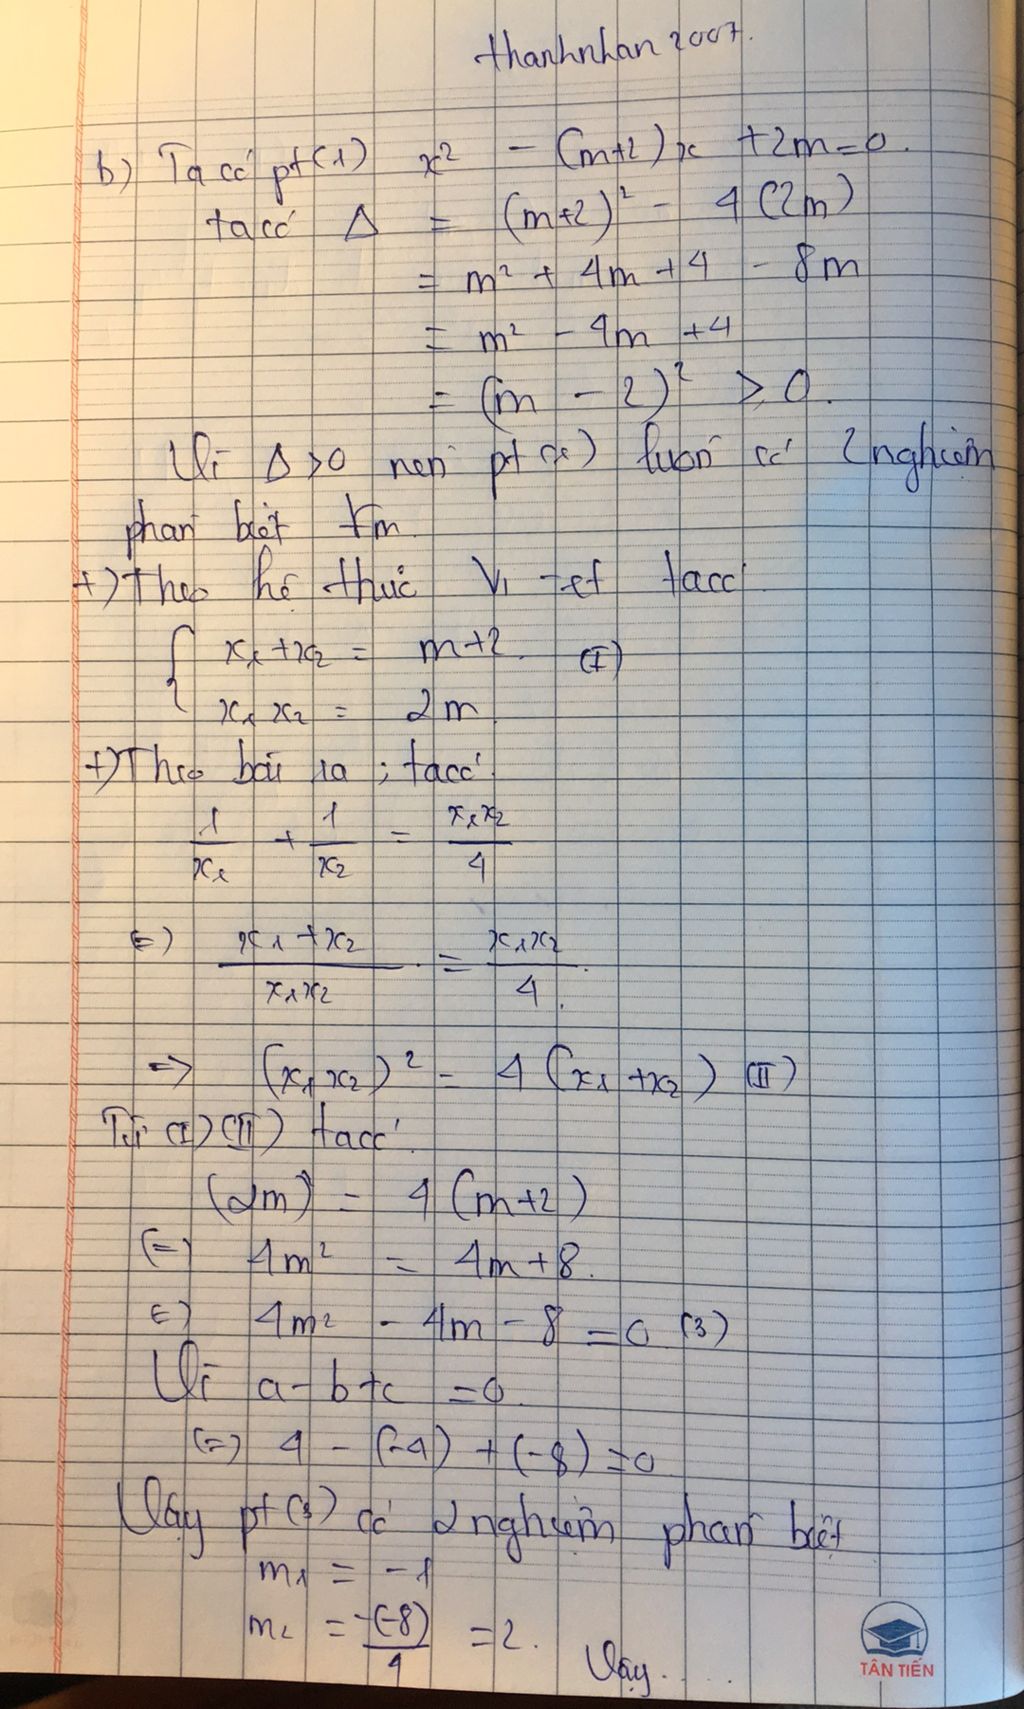 thanhnhan2007.
b) Ta có pt(1) x² - (m+2)x + 2m = 0.
ta có Δ = (m+2)² - 4(2m)
= m² + 4m + 4 - 8m
= m² - 4m + 4
= (m - 2)² ≥ 0.
Vì Δ > 0 nên pt (1) luôn có 2 nghiệm
phân biệt ∀m.
+) Theo hệ thức Vi-et ta có
{ x₁ + x₂ = m+2. (I)
x₁ x₂ = 2m
+) Theo bài ra ; ta có
1/x₁ + 1/x₂ = x₁x₂/4
(=) (x₁ + x₂)/(x₁x₂) = x₁x₂/4.
=> (x₁x₂)² = 4(x₁ + x₂) (II)
Từ (I) (II) ta có
(2m)² = 4(m+2)
(=) 4m² = 4m + 8.
(=) 4m² - 4m - 8 = 0 (3)
Vì a - b + c = 0
(=) 4 - (-4) + (-8) = 0
Vậy pt (3) có 2 nghiệm phân biệt
m₁ = -1
m₂ = -(-8)/4 = 2.
Vậy.....
TÂN TIẾN